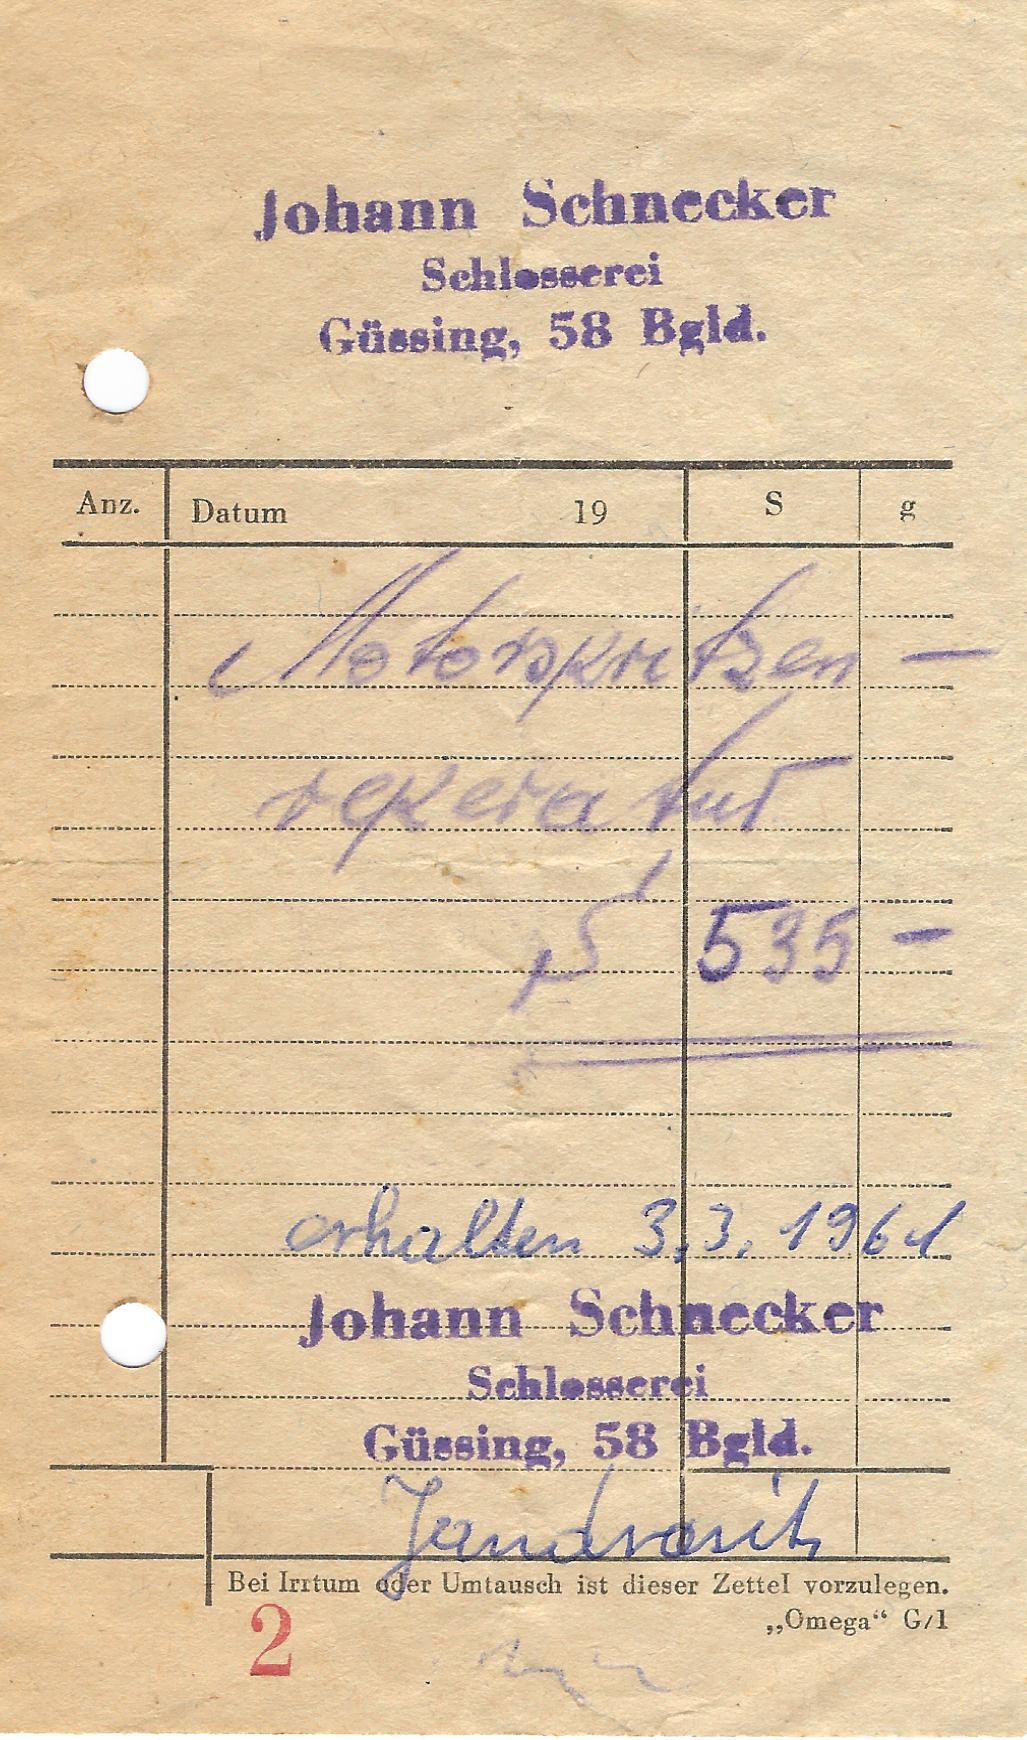 Johann Schnecker
Schlosserei
Güssing, 58 Bgld.
Anz. Datum 19 S g
Motorspritzen —
reperatur
S 535 —
erhalten 3.3.1961
Johann Schnecker
Schlosserei
Güssing, 58 Bgld.
Bei Irrtum oder Umtausch ist dieser Zettel vorzulegen.
„Omega“ G/1
2